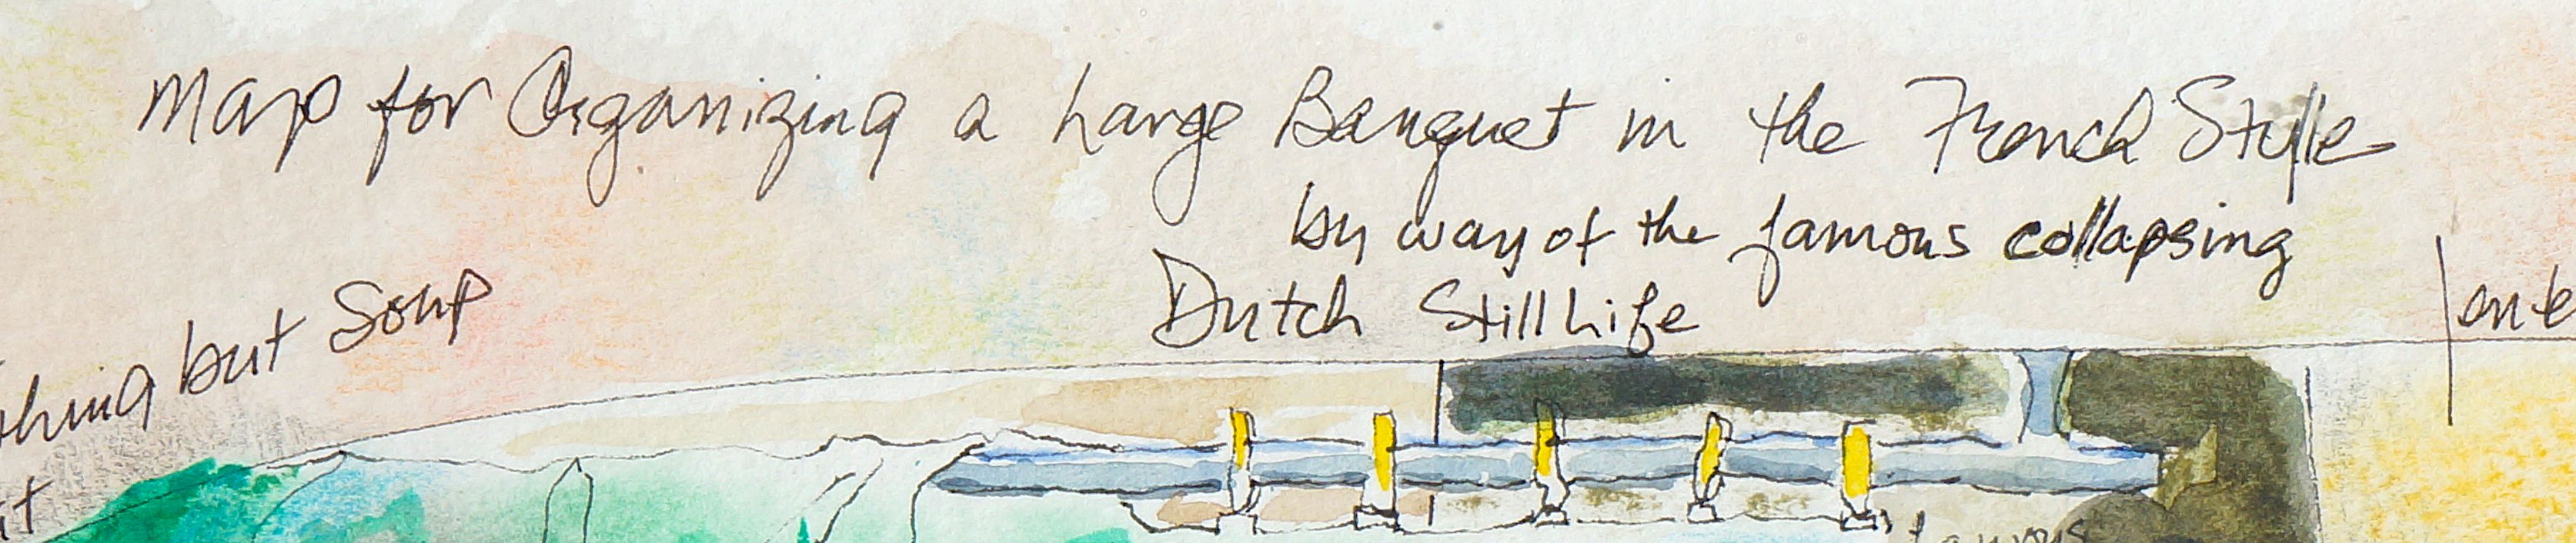 Map for Organizing a Large Banquet in the French Style
by way of the famous collapsing
Dutch Still Life
but Soup
it
famous